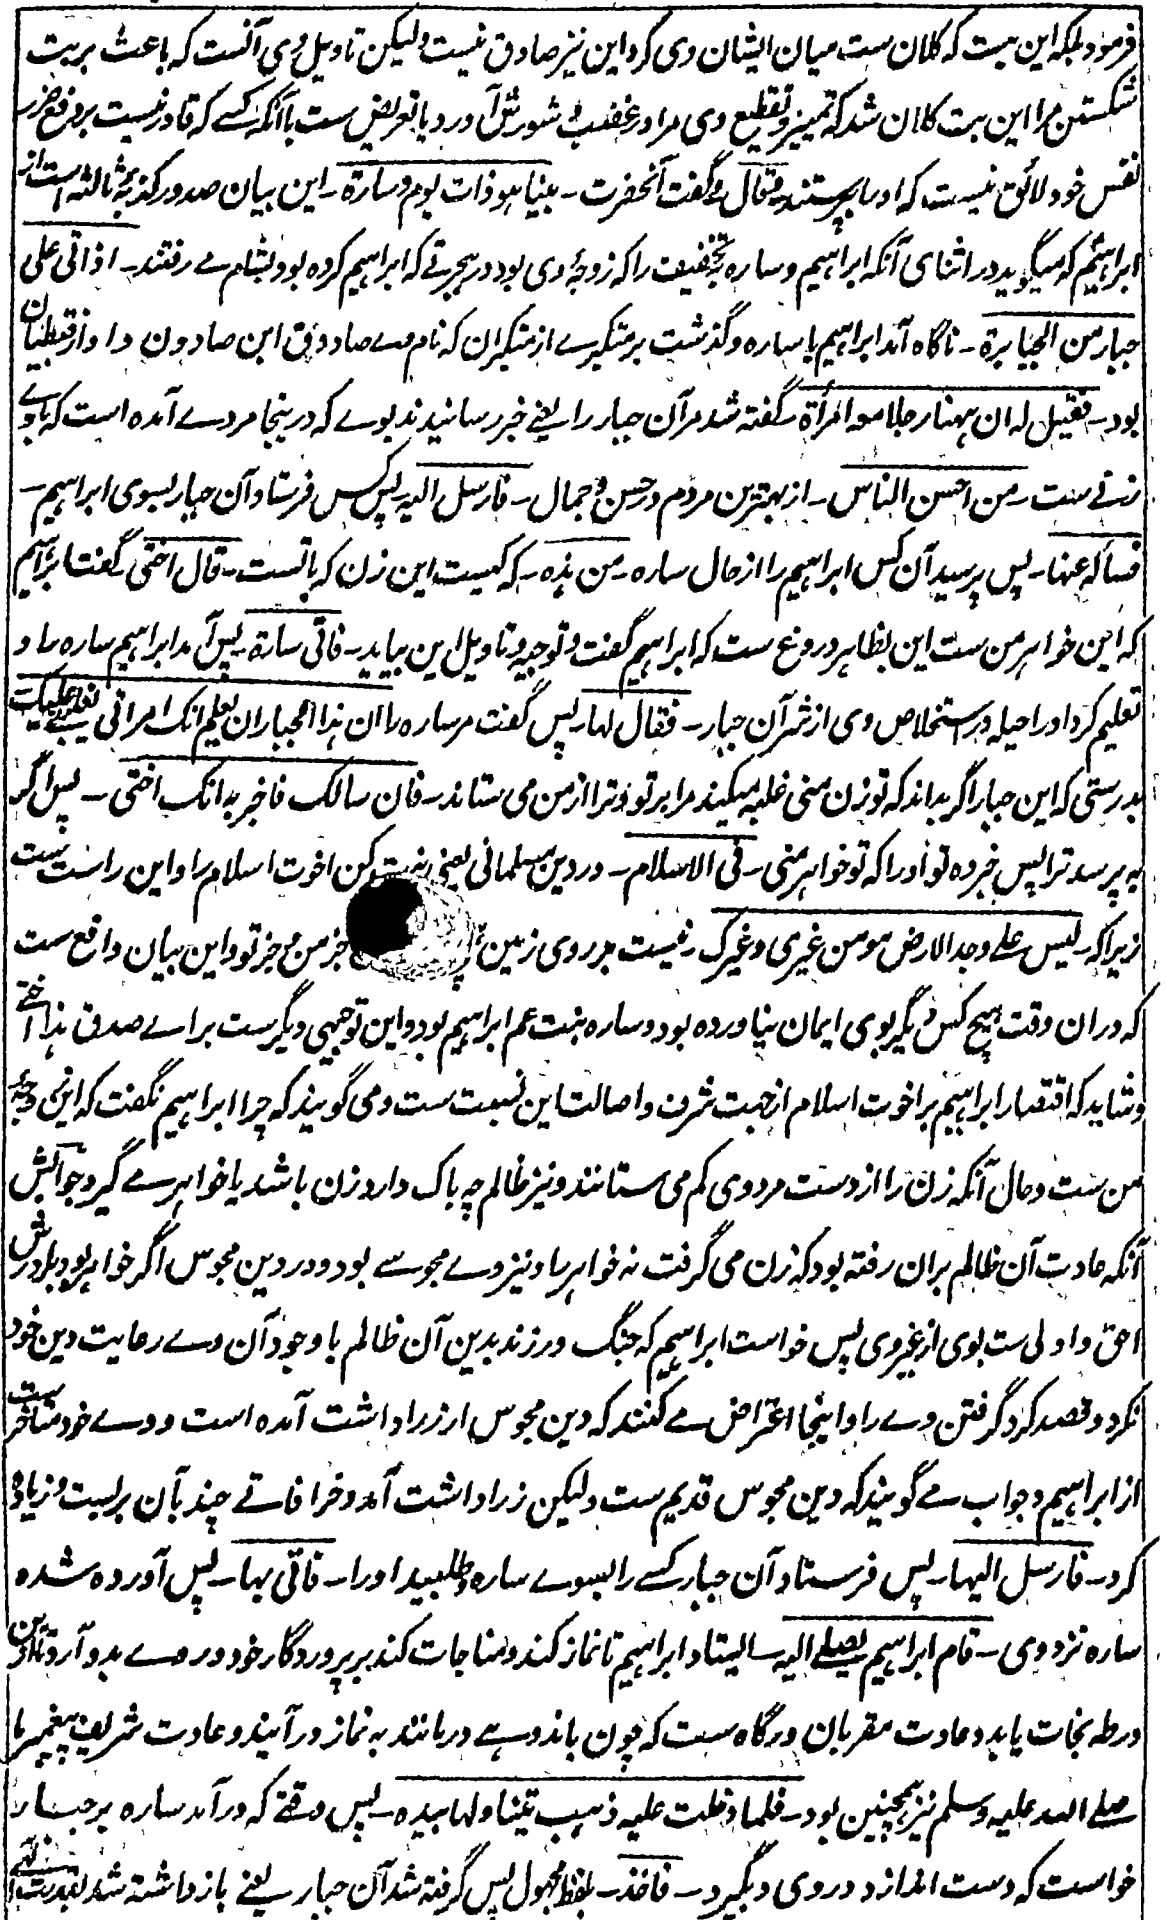 فرمود بلکه این بت که کلان ست میان ایشان وی کرد این نیز صادق نیست ولیکن تاویل وی آنست که باعث بریت
شکستن مرا این بت کلان شد که تمییز و تقطیع وی مرا در غضب و شورش آورد یا تعریض ست باآنکه کسے که قادر نیست بر دفع ضرر
نفس خود لائق نیست که او را پرستند و قال و گفت آنحضرت - بینا هو ذات یوم و سارة - این بیان صدور کذبهٔ ثالثه است از
ابراهیم که میگوید در اثنای آنکه ابراهیم و ساره بتخفیف را که زوجهٔ وی بود در هجرتے که ابراهیم کرده بود و بشام مے رفتند - اذ اتی علی
جبار من الجبابرة - ناگاه آمد ابراهیم با ساره و گذشت بر متکبرے از متکبران که نام وے صادوق ابن صادون و او از قبطیان
بود - فقیل له ان ههنا رجلا معه امرأة - گفته شد مر آن جبار را یعنے خبر رسانیدند بوے که درینجا مردے آمده است که با وے
زنے ست - من احسن الناس - از بهترین مردم در حسن و جمال - فارسل الیه پس کس فرستاد آن جبار بسوی ابراهیم -
فساله عنها - پس پرسید آن کس ابراهیم را از حال ساره - من هذه - که کیست این زن که باتست - قال اختی گفت ابراهیم
که این خواهر من ست این بظاهر دروغ ست که ابراهیم گفت و توجیه و تاویل این بیاید - فاتی سارة - پس آمد ابراهیم ساره را و
تعلیم کرد او را حیله در استخلاص وی از شر آن جبار - فقال لها - پس گفت مر ساره را ان هذا الجبار ان یعلم انک امراتی یغلبنی علیک
بدرستی که این جبار اگر بداند که تو زن منی غلبه میکند مرا بر تو و ترا از من می ستاند - فان سالک فاخبریه انک اختی - پس اگر
به پرسد ترا پس خبر ده تو او را که تو خواهر منی - فی الاسلام - در دین مسلمانی یعنی نیت کن اخوت اسلام را و این راست ست
زیرا که - لیس علے وجه الارض مومن غیری و غیرک - نیست بر روی زمین جز من و جز تو و این بیان واقع ست
که دران وقت هیچ کس دیگر بوی ایمان نیاورده بود و ساره بنت عم ابراهیم بود و این توجیهی دیگر ست براے صدق هذا اختے
و شاید که اقتصار ابراهیم بر اخوت اسلام از جهت شرف و اصالت این نسبت ست و می گویند که چرا ابراهیم نگفت که این زوجهٔ
من ست و حال آنکه زن را از دست مردوی کم می ستانند و نیز ظالم چه باک دارد زن باشد یا خواهر مے گیرد جوابش
آنکه عادت آن ظالم بران رفته بود که زن می گرفت نه خواهر را و نیز وے مجوسے بود و در دین مجوس اگر خواهر بود برادرش
احق و اولی ست بوی از غیر وی پس خواست ابراهیم که چنگ در زند بدین آن ظالم باوجود آن وے رعایت دین خود
نکرد و قصد کرد گرفتن وے را و اینجا اعتراض مے کنند که دین مجوس از زراداشت آمده است و وے خود متاخر ست
از ابراهیم و جواب مے گویند که دین مجوس قدیم ست ولیکن زراداشت آمد و خرافاتے چند بآن بربست و زیاده
کرد - فارسل الیها - پس فرستاد آن جبار کسے را بسوے ساره و طلبید او را - فاتی بها - پس آورده شده
ساره نزد وی - قام ابراهیم یصلے الیه - بایستاد ابراهیم تا نماز کند و مناجات کند بر پروردگار خود و رو بدو آرد تا ازین
ورطه نجات یابد و عادت مقربان درگاه ست که چون باندوهے درمانند به نماز درآیند و عادت شریف پیغمبر ما
صلے الله علیه وسلم نیز همچنین بود - فلما دخلت علیه ذهب یتناولها بیده - پس وقتے که درآمد ساره بر جبار
خواست که دست اندازد در وی و بگیرد - فاخذ - بلفظ مجهول پس گرفته شد آن جبار یعنے بازداشته شد